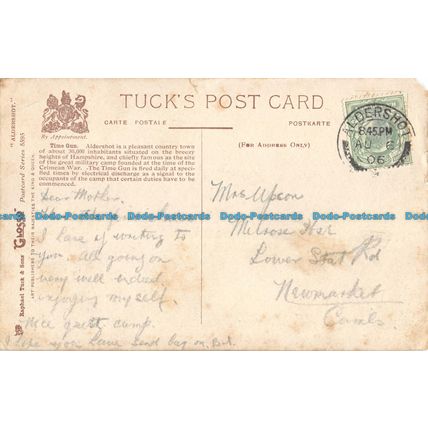 TUCK'S POST CARD
By Appointment.
CARTE POSTALE
POSTKARTE
Time Gun. Aldershot is a pleasant country town
of about 30,000 inhabitants situated on the breezy
heights of Hampshire, and chiefly famous as the site
of the great military camp founded at the time of the
Crimean War. - The Time Gun is fired daily at spec-
ified times by electrical discharge as a signal to the
occupants of the camp that certain duties have to be
commenced.
(For Address Only)
ALDERSHOT
8.45 PM
AU 6
06
"ALDERSHOT."
Postcard Series 8595
"GLOSSO"
Raphael Tuck & Sons'
ART PUBLISHERS TO THEIR MAJESTIES THE KING & QUEEN.
Dear Mother.
I have of writing to
you. all going on
very well indeed
enjoying myself.
Nice quiet camp.
I hope you have send bag on.
Mrs Upson
Melrose
Lower Stat Rd
Newmarket
Cambs.
Dodo-Postcards Dodo-Postcards Dodo-Postcards
Dodo-Postcards Dodo-Postcards Dodo-Postcards